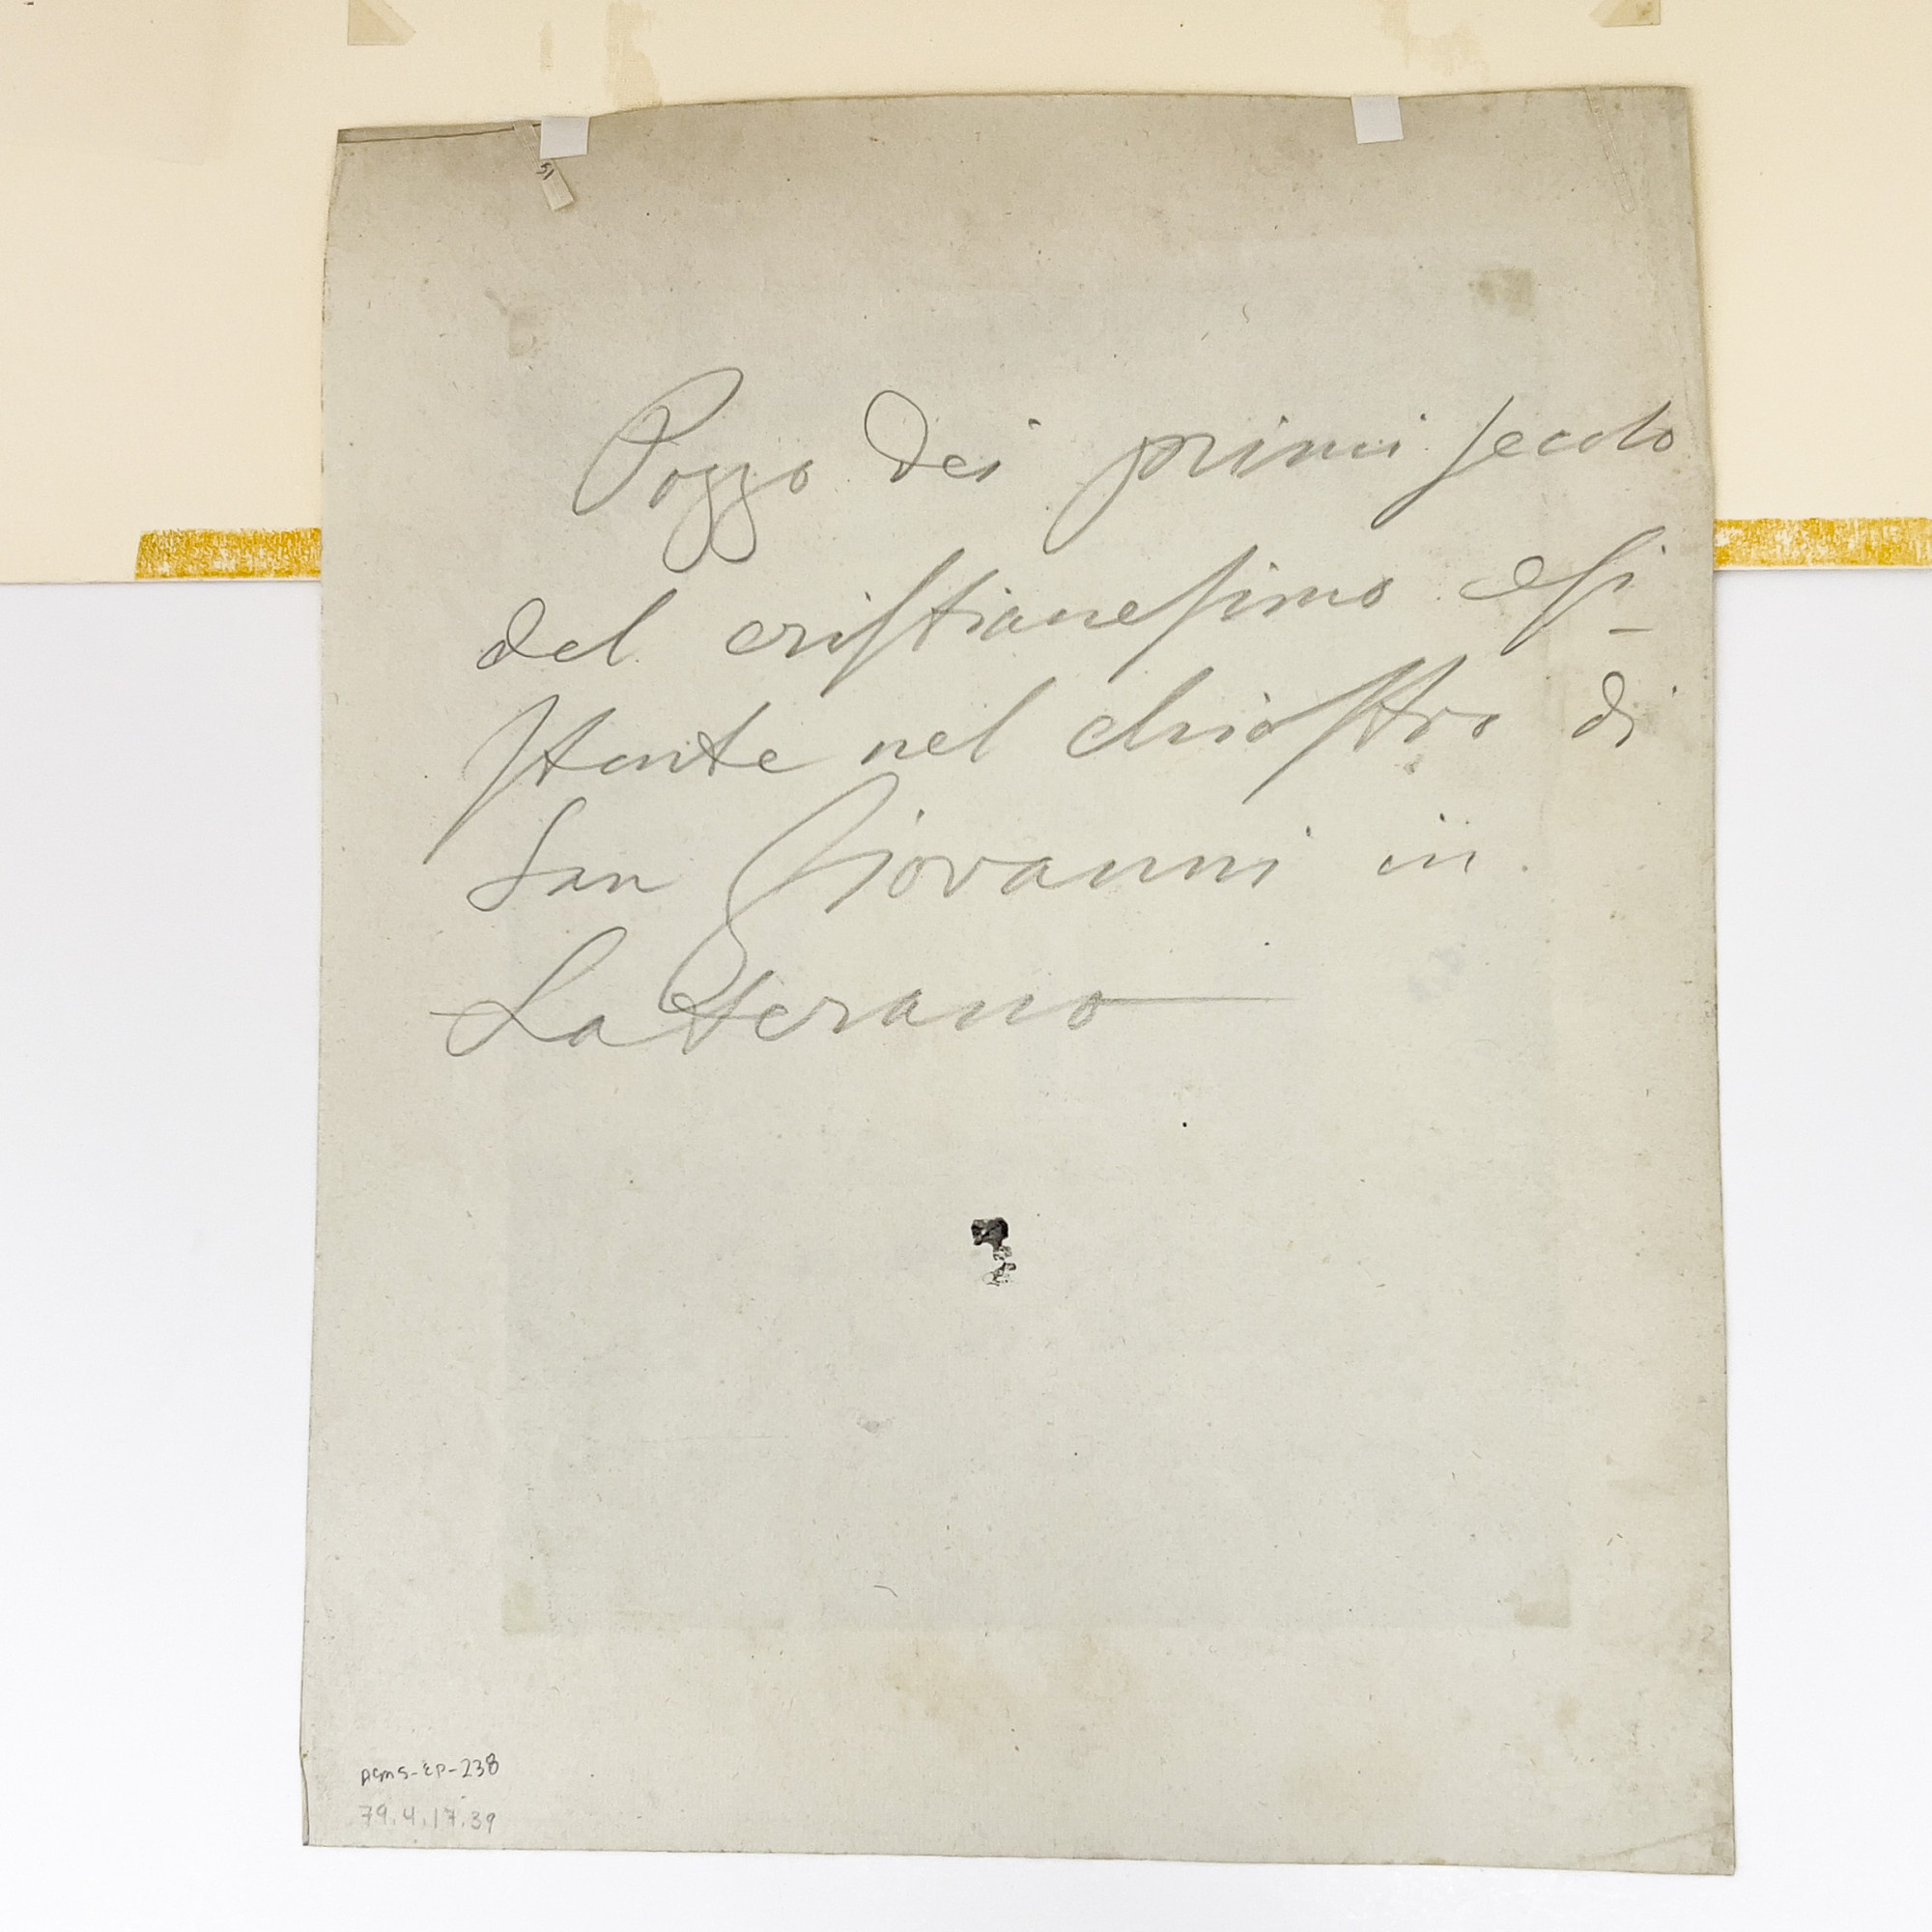 Pozzo dei primi secolo
del cristianesimo esi-
stente nel chiostro di
San Giovanni in
Laterano
ACMS-EP-238
79.4.17.39